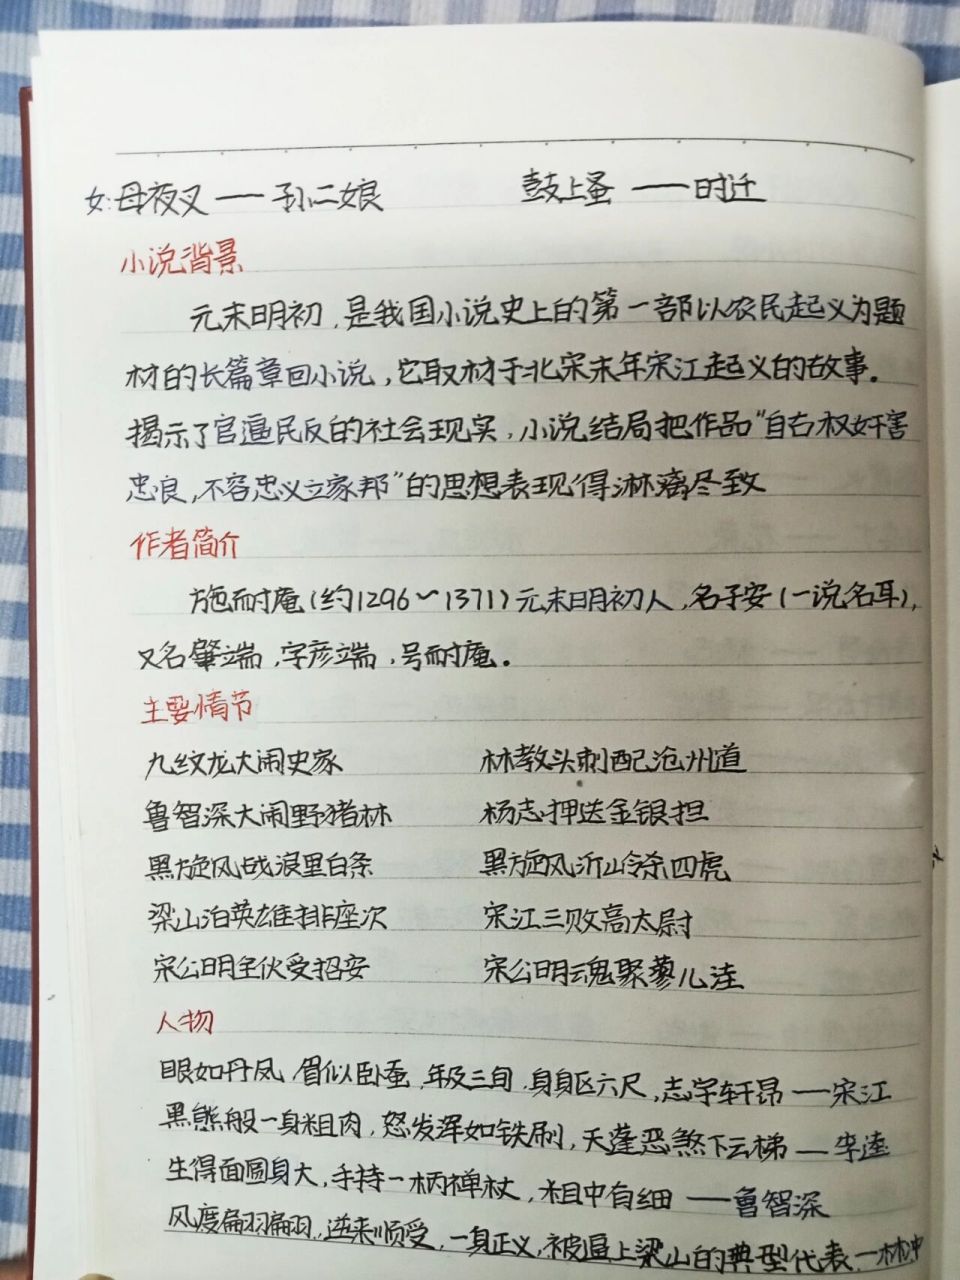 女:母夜叉——孙二娘 鼓上蚤——时迁
小说背景
元末明初,是我国小说史上的第一部以农民起义为题
材的长篇章回小说,它取材于北宋末年宋江起义的故事。
揭示了官逼民反的社会现实,小说结局把作品"自古权奸害
忠良,不容忠义立家邦"的思想表现得淋漓尽致
作者简介
施耐庵(约1296~1371)元末明初人,名子安(一说名耳),
又名肇端,字彦端,号耐庵。
主要情节
九纹龙大闹史家 林教头刺配沧州道
鲁智深大闹野猪林 杨志押送金银担
黑旋风战浪里白条 黑旋风沂岭杀四虎
梁山泊英雄排座次 宋江三败高太尉
宋公明全伙受招安 宋公明魂聚蓼儿洼
人物
眼如丹凤,眉似卧蚕,年及三旬,身躯六尺,志宇轩昂——宋江
黑熊般一身粗肉,怒发浑如铁刷,天蓬恶煞下云梯——李逵
生得面圆身大,手持一柄禅杖,粗中有细——鲁智深
风度翩翩,逆来顺受,一身正义,被逼上梁山的典型代表—林冲